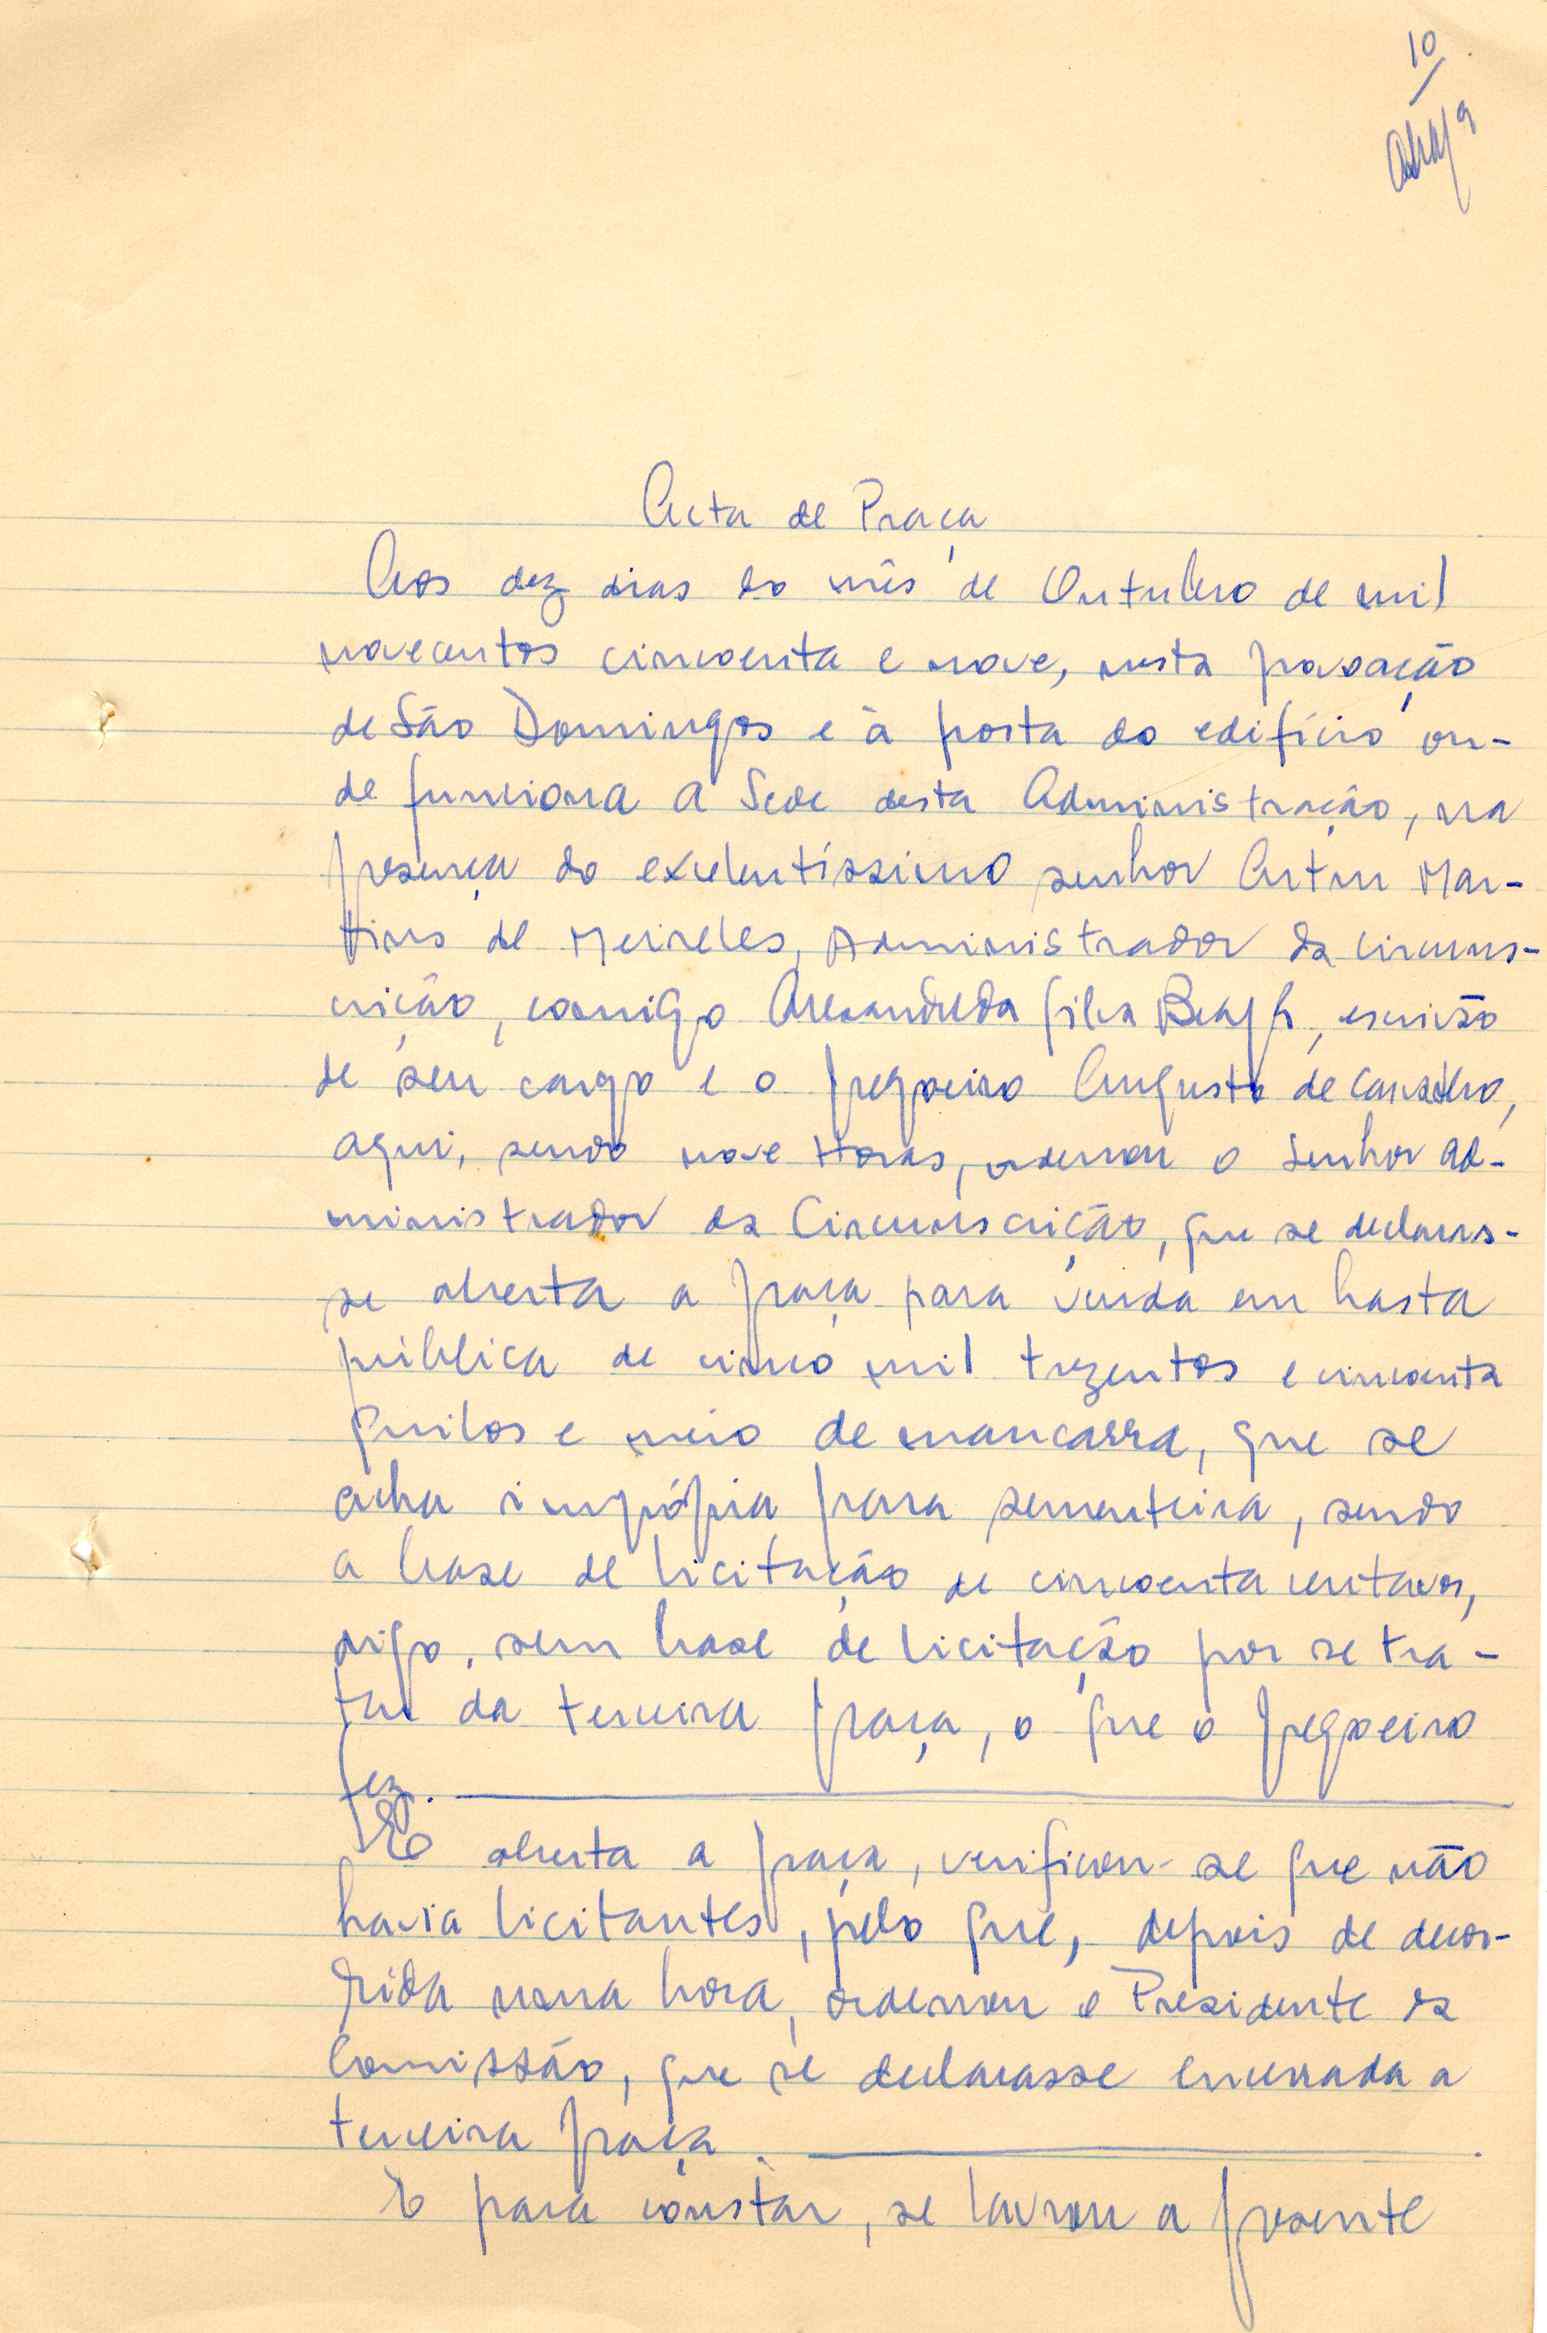 10
Acta de Praça
Aos dez dias do mês de Outubro de mil
novecentos cincoenta e nove, nesta povoação
de São Domingos e à porta do edifício on-
de funciona a Sede desta Administração, na
presença do exelentíssimo senhor Artur Mar-
tins de Meireles, Administrador da circuns-
crição, comigo da Silva, escrivão
de seu cargo e o pregoeiro Augusto de Carvalho,
aqui, sendo nove Horas, ordenou o Senhor Ad-
ministrador da Circunscrição, que se declaras-
se aberta a praça para venda em hasta
pública de cinco mil trezentos e cincoenta
quilos e meio de mancarra, que se
acha imprópria para sementeira, sendo
a base de licitação de cincoenta centavos,
digo, sem base de licitação por se tra-
tar da terceira praça, o que o pregoeiro
fez.
E aberta a praça, verificou-se que não
havia licitantes, pelo que, depois de decor-
rida uma hora, ordenou o Presidente da
Comissão, que se declarasse encerrada a
terceira praça.
E para constar, se lavrou a presente